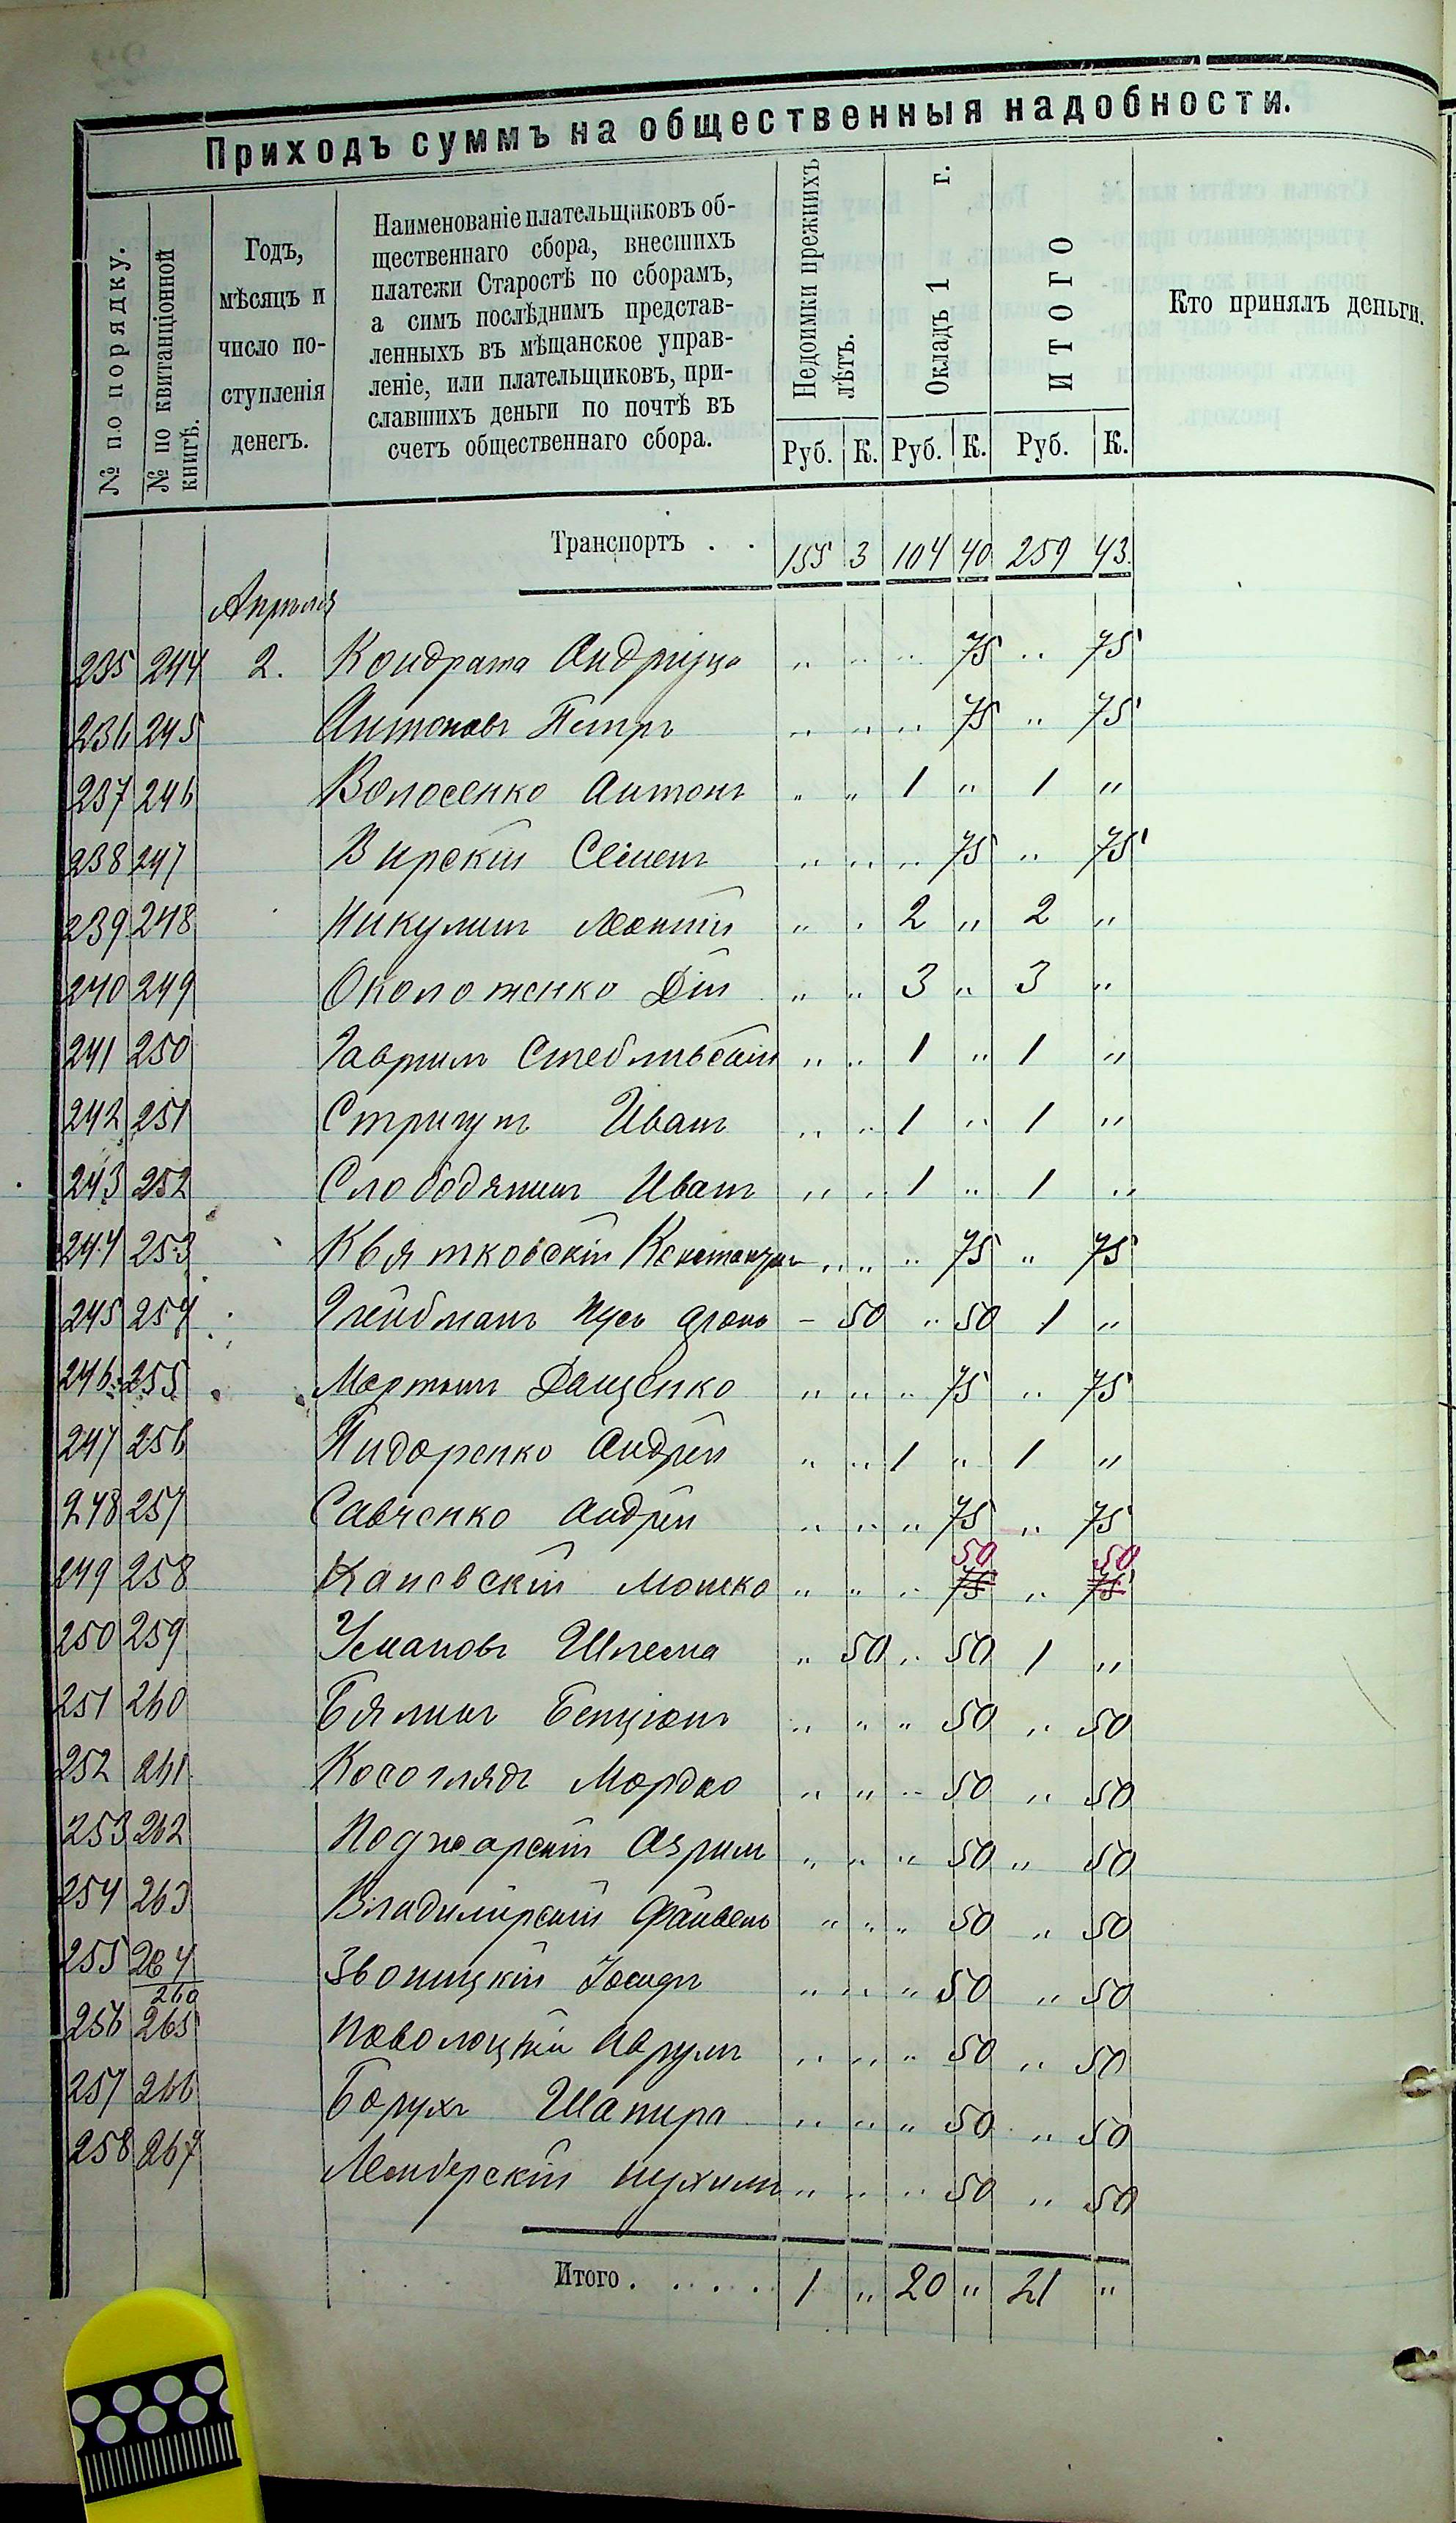 Приходъ суммъ на общественныя надобности.
№ по порядку.
№ по квитанціонной книгѣ.
Годъ, мѣсяцъ и число поступленія денегъ.
Наименованіе плательщиковъ об-
щественнаго сбора, внесшихъ
платежи Старостѣ по сборамъ,
а симъ послѣднимъ представ-
ленныхъ въ мѣщанское управ-
леніе, или плательщиковъ, при-
славшихъ деньги по почтѣ въ
счетъ общественнаго сбора.
Недоимки прежнихъ лѣтъ.
Окладъ 1 г.
ИТОГО
Кто принялъ деньги.
Руб. К. Руб. К. Руб. К.
Транспортъ . . 155 3 104 40 259 43
Апрѣля
235 244 2. Кондрата „ „ „ 75 „ 75
236 245 Антоновъ Петръ „ „ „ 75 „ 75
237 246 Волосенко Антонъ „ „ 1 „ 1 „
238 247 Вирскій Семенъ „ „ „ 75 „ 75
239 248 Никулинъ Леонтій „ „ 2 „ 2 „
240 249 Околотенко „ „ 3 „ 3 „
241 250 Гаврилъ Стебливскій „ „ 1 „ 1 „
242 251 Стригунъ Иванъ „ „ 1 „ 1 „
243 252 Слободянинъ Иванъ „ „ 1 „ 1 „
244 253 Квятковскій Константинъ „ „ „ 75 „ 75
245 254 - 50 „ 50 1 „
246 255 Мартынъ Дащенко „ „ „ 75 „ 75
247 256 Пидоренко Андрей „ „ 1 „ 1 „
248 257 Савченко Андрей „ „ „ 75 „ 75
50 50
249 258 Каневскій Мошко „ „ „ 75 „ 75
250 259 Усмановъ Шлема „ 50 „ 50 1 „
251 260 Бялинъ Бенціонъ „ „ „ 50 „ 50
252 261 Косоглядъ Мордко „ „ „ 50 „ 50
253 262 Поджарскій „ „ „ 50 „ 50
254 263 Владимірскій Файвель „ „ „ 50 „ 50
255 264 Звоницкій „ „ „ 50 „ 50
260
256 265 Паволоцкій Аврумъ „ „ „ 50 „ 50
257 266 Борухъ Шапира „ „ „ 50 „ 50
258 267 Нухимъ „ „ „ 50 „ 50
Итого . . . . . 1 „ 20 „ 21 „